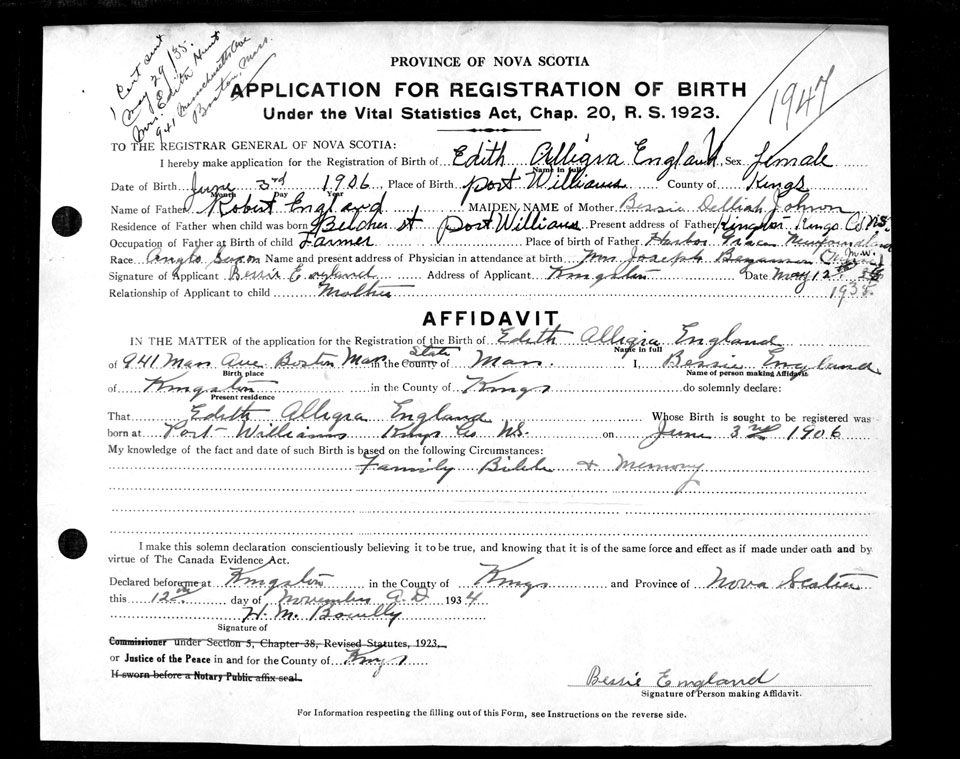 1 Cert sent
May 29/35.
Mrs. Edith Hunt
941 Massachusetts Ave
Boston, Mass.
1947
PROVINCE OF NOVA SCOTIA
APPLICATION FOR REGISTRATION OF BIRTH
Under the Vital Statistics Act, Chap. 20, R. S. 1923.
TO THE REGISTRAR GENERAL OF NOVA SCOTIA:
I hereby make application for the Registration of Birth of Edith Alligra England Sex female
Name in full
Date of Birth June 3rd 1906 Place of Birth Port Williams County of Kings
Month Day Year
Name of Father Robert England MAIDEN NAME of Mother Bessie Johnson
Residence of Father when child was born Belcher st Port Williams Present address of Father Kingston Kings Co. N.S.
Occupation of Father at Birth of child Farmer Place of birth of Father Harbor Grace Newfoundland
Race Anglo Saxon Name and present address of Physician in attendance at birth Mrs Joseph
Signature of Applicant Bessie England Address of Applicant Kingston Date May 12th
1935.
Relationship of Applicant to child Mother
AFFIDAVIT
IN THE MATTER of the application for the Registration of the Birth of Edith Alligra England
Name in full
of 941 Mass Ave Boston Mass in the County of State Mass. I, Bessie England
Birth place Name of person making Affidavit.
of Kingston in the County of Kings do solemnly declare:
Present residence
That Edith Alligra England Whose Birth is sought to be registered was
born at Port Williams Kings Co N.S. on June 3rd 1906
My knowledge of the fact and date of such Birth is based on the following Circumstances:
Family Bible & Memory
I make this solemn declaration conscientiously believing it to be true, and knowing that it is of the same force and effect as if made under oath and by
virtue of The Canada Evidence Act.
Declared before me at Kingston in the County of Kings and Province of Nova Scotia
this 12th day of November A.D. 1934
H. M.
Signature of
Commissioner under Section 5, Chapter 38, Revised Statutes, 1923,
or Justice of the Peace in and for the County of Kings
If sworn before a Notary Public affix seal.
Bessie England
Signature of Person making Affidavit.
For Information respecting the filling out of this Form, see Instructions on the reverse side.